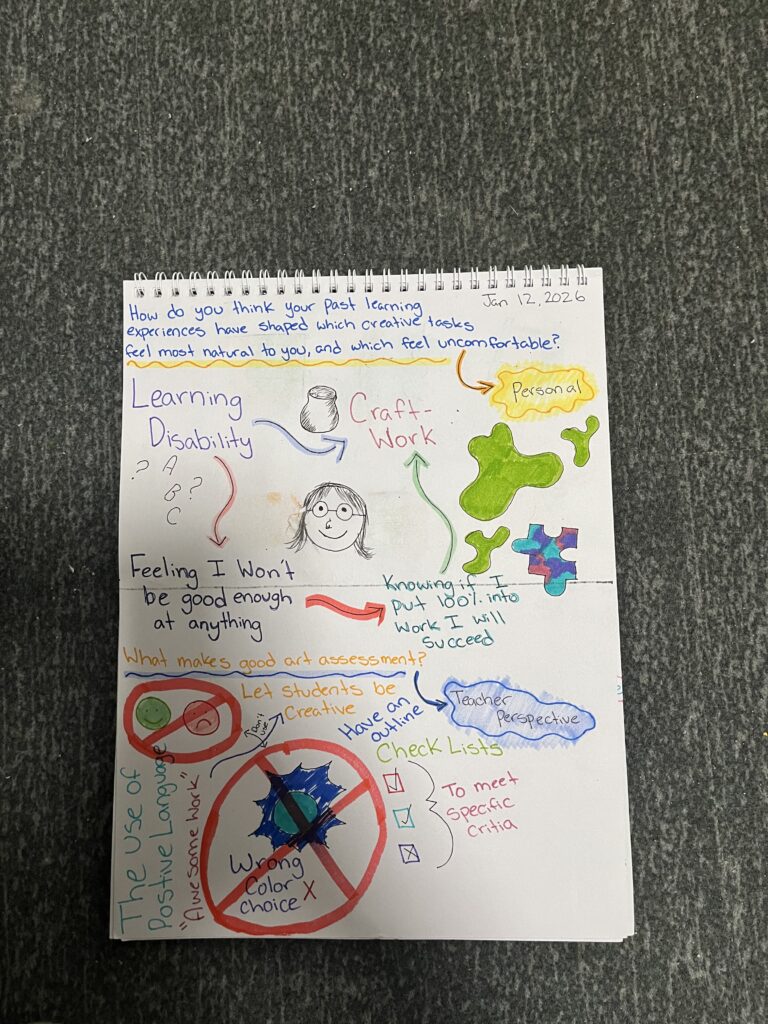 Jan 12, 2026
How do you think your past learning
experiences have shaped which creative tasks
feel most natural to you, and which feel uncomfortable?
Personal
Learning
Disability
Craft-
Work
? A
B ?
C
Feeling I Won't
be good enough
at anything
Knowing if I
put 100% into
Work I will
Succeed
What makes good art assessment?
Teacher
Perspective
Let Students be
Creative
Don't
use
Have an
outline
Check Lists
To meet
Specific
Critia
The use of
Postive Language
"Awesome Work"
Wrong
Color
choice X